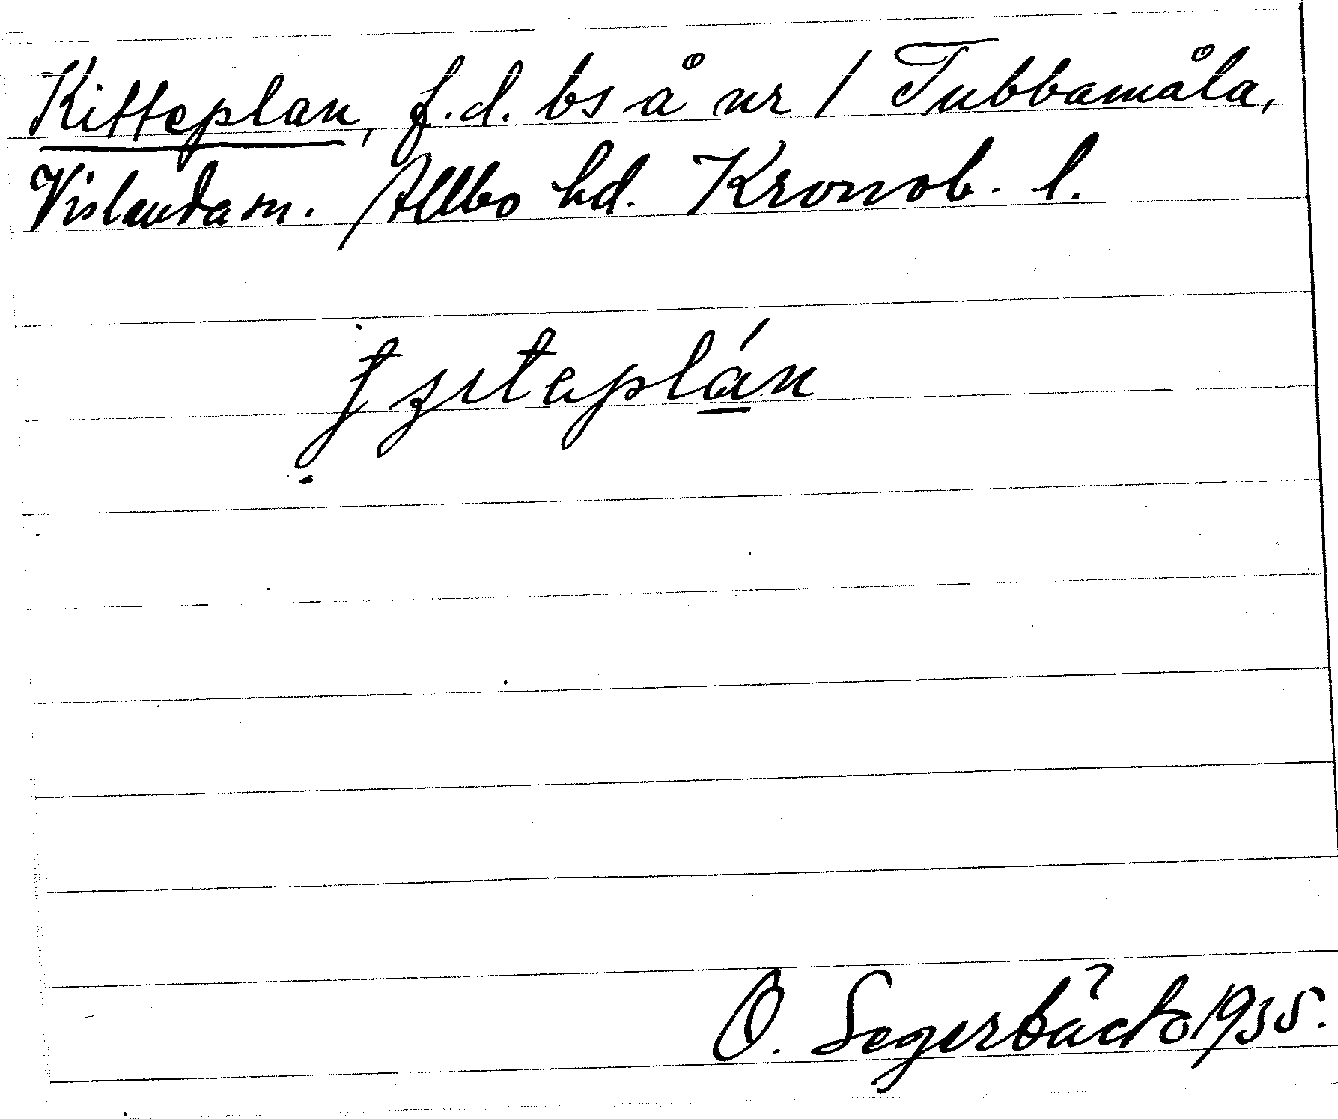 Kitteplan, f.d. bs å nr 1 Tubbamåla,
Vislanda sn. Allbo hd. Kronob. l.
ƭʒıtəplán
O. Segerbäck 1935.